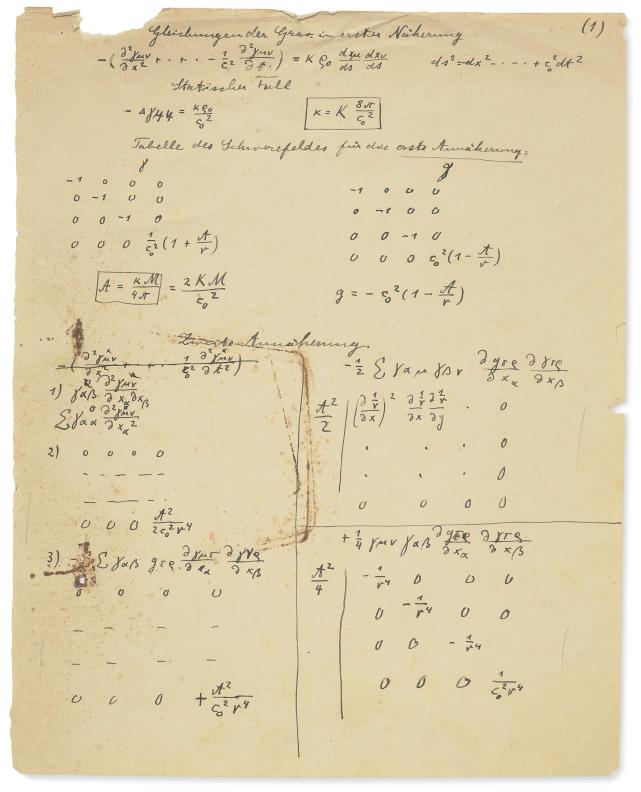 Gleichungen der Grav. in erster Näherung (1)
-(∂²γμν/∂x² + · + · - 1/c² ∂²γμν/∂t²) = κ ρ₀ dxμ/ds dxν/ds   ds² = -dx² - · - · + c₀² dt²
Statischer Fall
- Δγ44 = κρ₀/c₀²   κ = K 8π/c₀²
Tabelle des Schwerefeldes für die erste Annäherung:
γ   g
-1 0 0 0   -1 0 0 0
0 -1 0 0   0 -1 0 0
0 0 -1 0   0 0 -1 0
0 0 0 1/c₀² (1 + A/r)   0 0 0 c₀² (1 - A/r)
A = κM/4π = 2KM/c₀²   g = - c₀² (1 - A/r)
Zweite Annäherung.
-(∂²γμν/∂x² + · · 1/c₀² ∂²γμν/∂t²)
1) γαβ ∂²γμν/∂xα∂xβ
Σ γαα ∂²γμν/∂xα²
2) 0 0 0 0
- - - -
- - - -
0 0 0 A²/2c₀²r⁴
3) - Σ γαβ gτρ ∂γμτ/∂xα ∂γνρ/∂xβ
0 0 0 0
- - - -
- - - -
0 0 0 + A²/c₀²r⁴
-1/2 Σ γαμ γβν ∂gτρ/∂xα ∂γτρ/∂xβ
A²/2 (∂1/r/∂x)² ∂1/r/∂x ∂1/r/∂y · 0
· · · 0
· · · 0
0 0 0 0
+ 1/4 γμν γαβ ∂gτρ/∂xα ∂γτρ/∂xβ
A²/4 -1/r⁴ 0 0 0
0 -1/r⁴ 0 0
0 0 -1/r⁴
0 0 0 1/c₀²r⁴